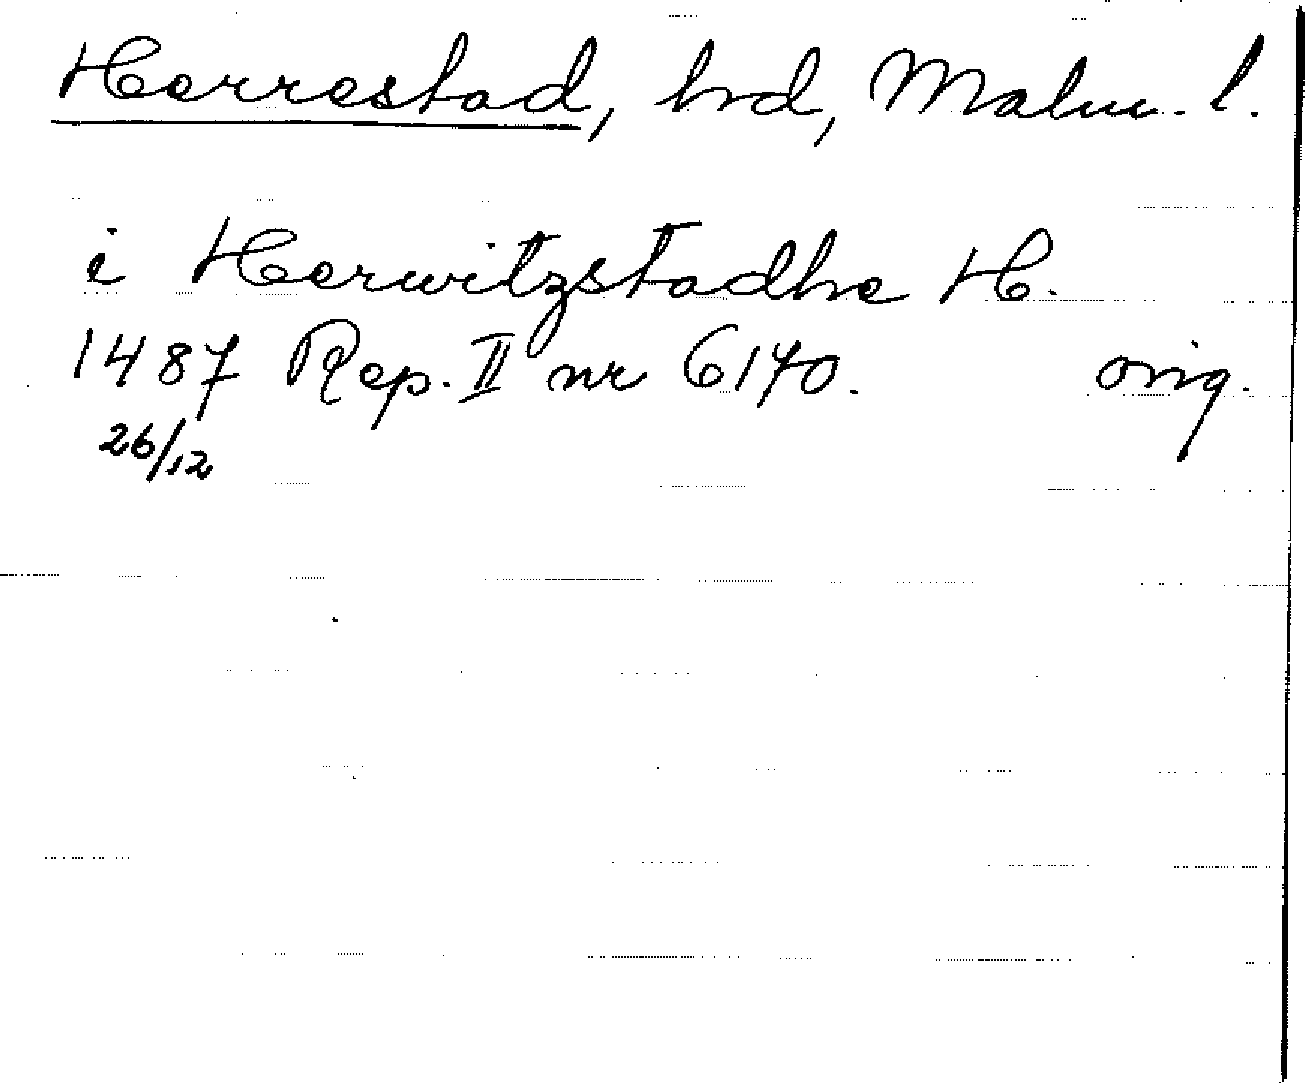 Herrestad, hrd, Malm. l.
i Herwitzstadhe H.
1487 Rep. II nr 6170. orig.
26/12